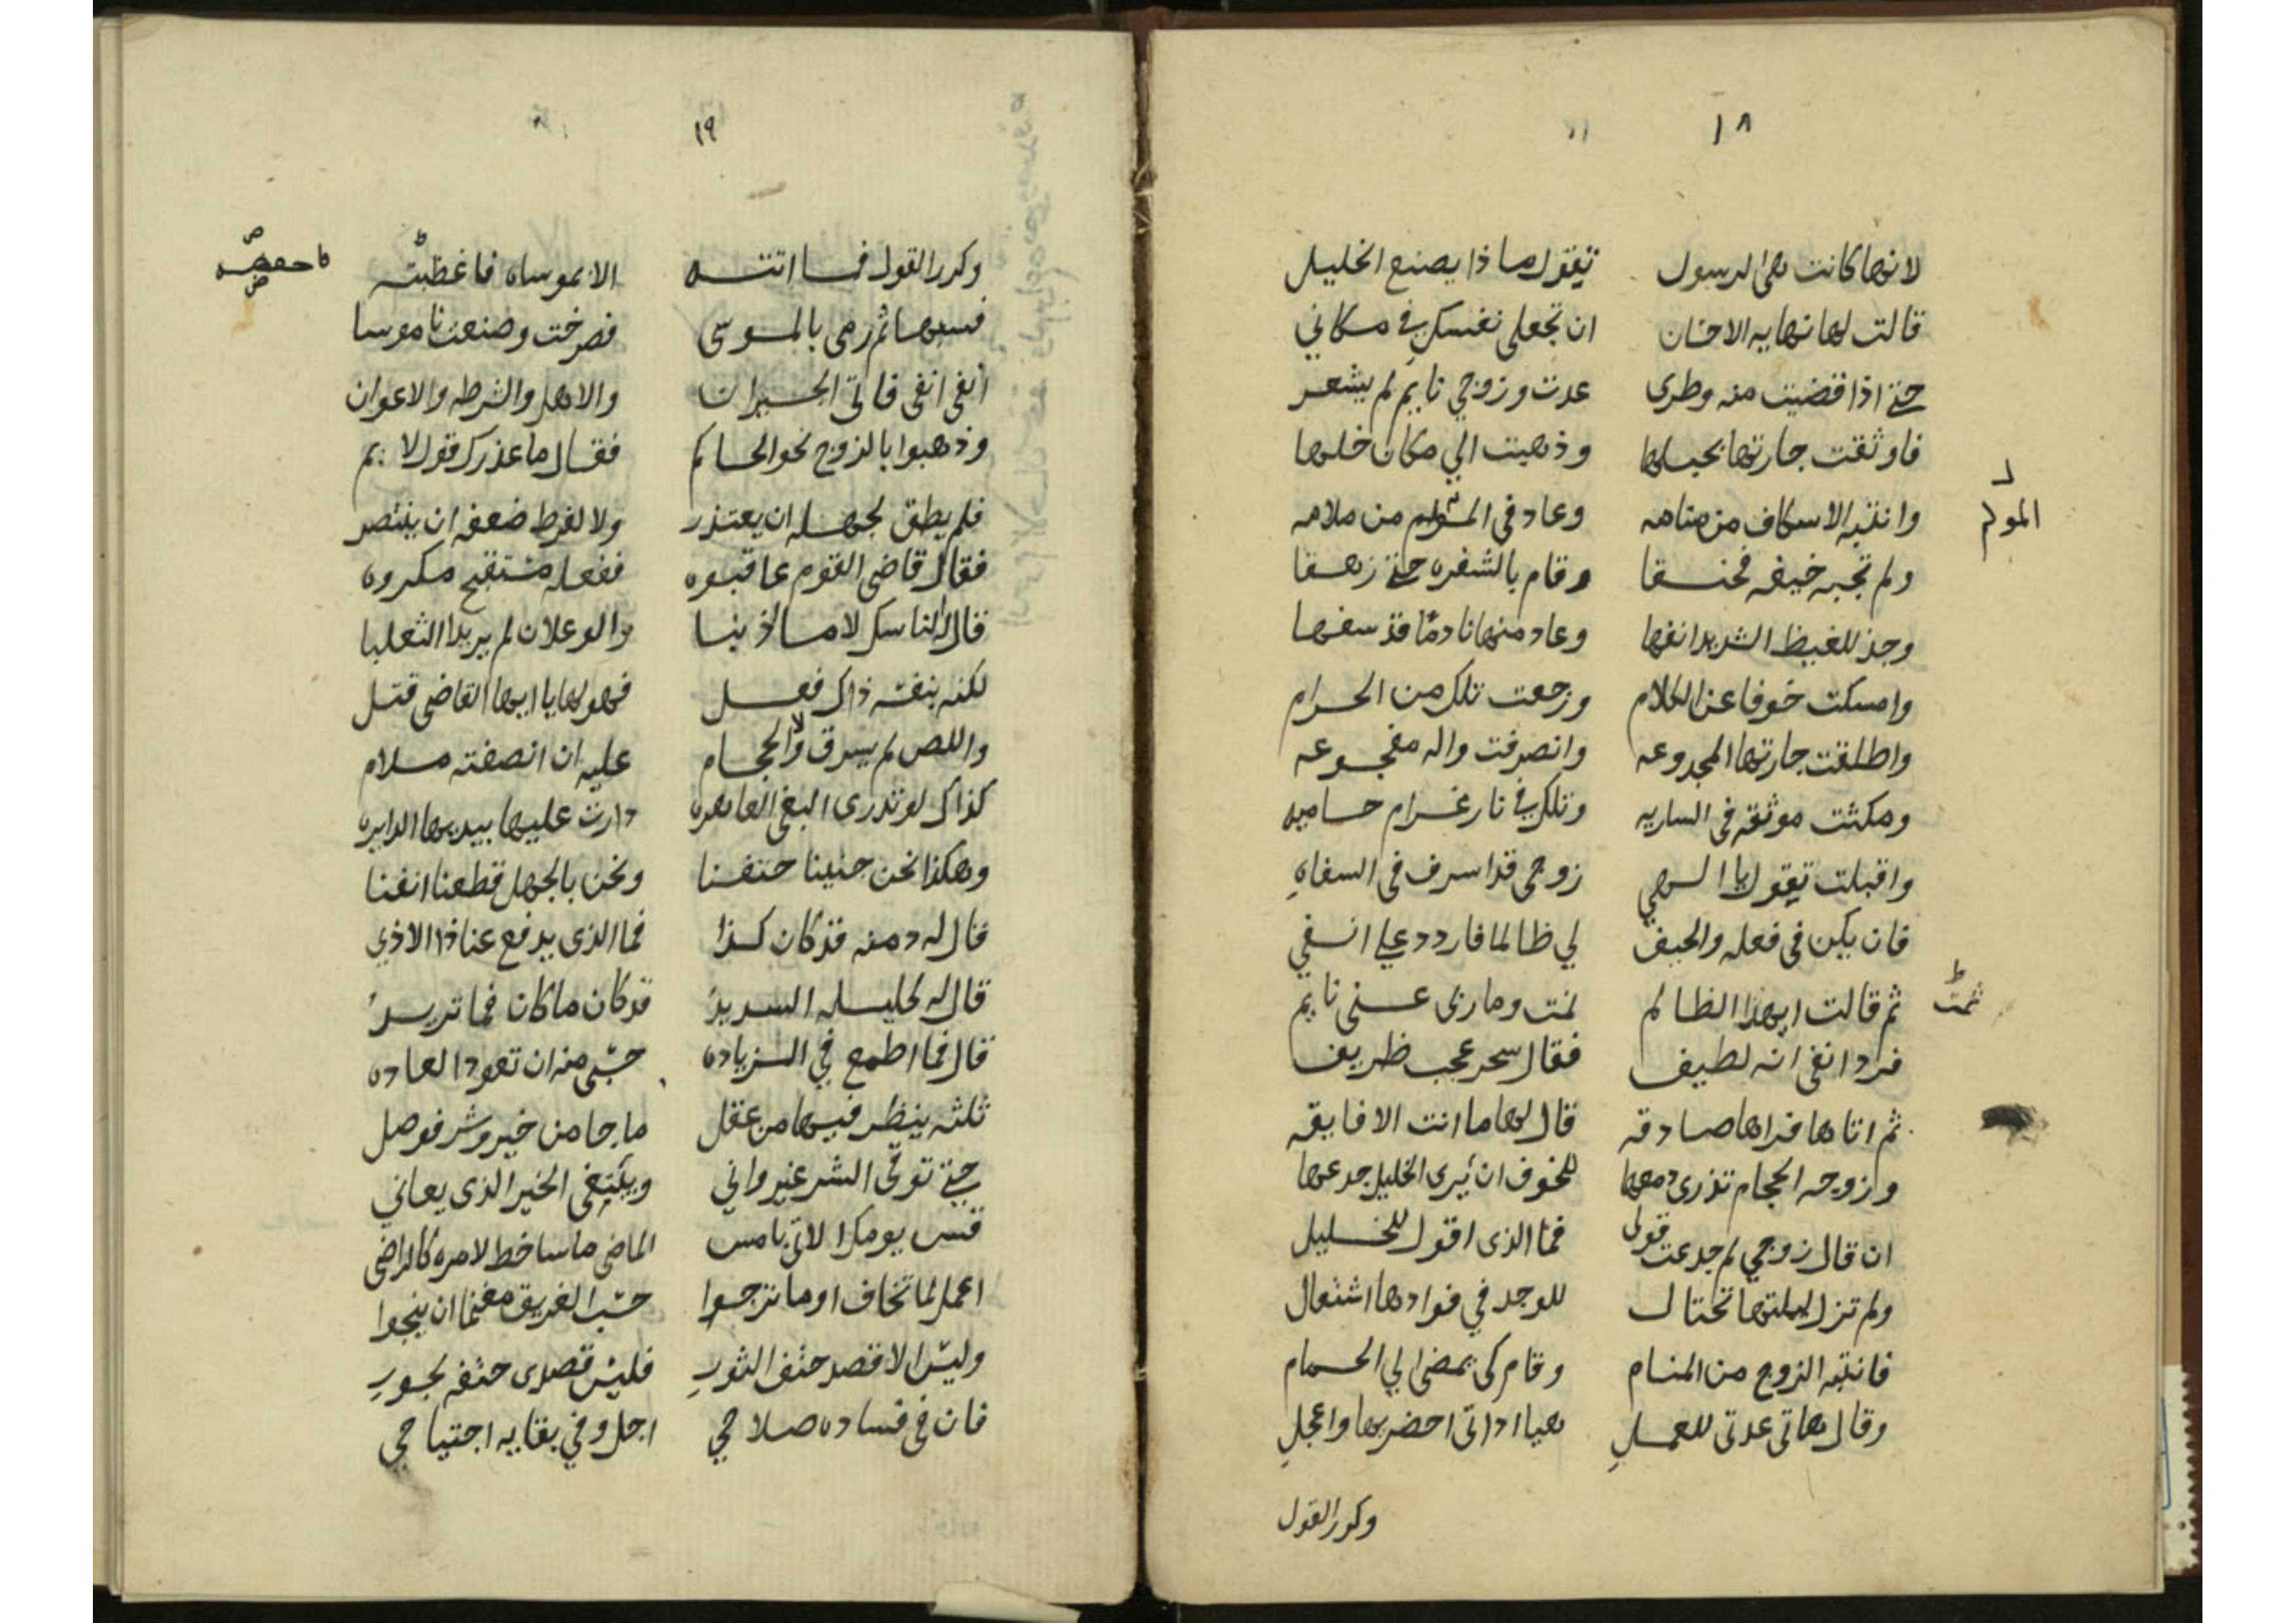 ١٨
لانها كانت هى الرسول تقول ماذا يصنع الخليل
قالت لها نهايه الاحسان ان تجعلى نفسك في مكاني
حتى اذا قضيت منه وطرى عدت وزوجي نايم لم يشعر
فاوثقت جارتها بحبلها وذهبت الي مكان خلها
وانتبه الاسكاف من منامه وعاد في من ملامه
المولم
ولم تجبه خيفه فحنقا وقام بالشفره حتى زهقا
وجذ للغيظ الشديد انفها وعاد منها نادما قد سفها
وامسكت خوفا عن الكلام ورجعت تلك من الحرام
واطلقت جارتها المجدوعه وانصرفت واله مفجوعه
ومكثت موثقه في الساريه وتلك في نار غرام حاميه
واقبلت تقول يا الهي زوجى قد اسرف في السفاهِ
فان يكن في فعله والحيف لي ظالما فاردد علي انفي
ثم قالت ايهذا الظالم نمت وما ربى عنى نايم
ثمت
فرد انفى انه لطيف فقال سحر عجب ظريف
ثم اتاها فراها صادقه قال لها ما انت الا فايقه
وزوجه الحجام تذرى دمعها للخوف ان يرى الخليل جدعها
ان قال زوجي لم جدعت قولى فما الذى اقول للخليل
ولم تزل ليلتها تحتال للوجد في فوادها اشتعال
فانتبه الزوج من المنام وقام كى يمضى الي الحمام
وقال هاتى عدتى للعملِ هيا اداتى احضريها واعجلِ
وكرر القول
١٩
وكرر القول فما اتته الا بموساه فاغضبته
فسبها ثم رمى بالموسى فصرخت وصنعت ناموسا
انفى انفى فاتى الجيران والاهل والشرطه والاعوان
وذهبوا بالزوج نحو الحاكم فقال ما عذرك قول لايم
فلم يطق لجهله ان يعتذر ولا لفرط ضعفه ان ينتصر
فقال قاضى القوم عاقبوه ففعله مستقبح مكروه
قال الناسك لا ما اذنبا والوعلان لم يريدا الثعلبا
لكنه بنفسه ذاك فعل فهو لها يا ايها القاضى قتل
واللص لم يسرق ولا الحجام عليه ان انصفته ملام
كذاك لو تدرى البغى العاهره دارت عليها بيديها الدايره
وهكذا نحن جنينا حتفنا ونحن بالجهل قطعنا انفنا
قال له دمنه قد كان كذا فما الذى يدفع عنا ذا الاذي
قال له كليله السديد قد كان ما كان فما تريد
قال فما اطمع في الزياده حسبى منه ان تعود العاده
ثلثه ينظر فيها من عقل ما جا من خير وشر فوصل
حتى توقى الشر غير واني ويبتغى الخير الذى يعاني
قس يومك الاتى بامس الماضى ما ساخط لامره كالراضى
اعمل لما تخاف او ما ترجوا حسب الغريق مغنما ان ينجوا
وليس الا قصد حتف الثورِ فليس قصدى حتفه بجورِ
فان في فساده صلاحي اجل وفي بقايه اجتياحي